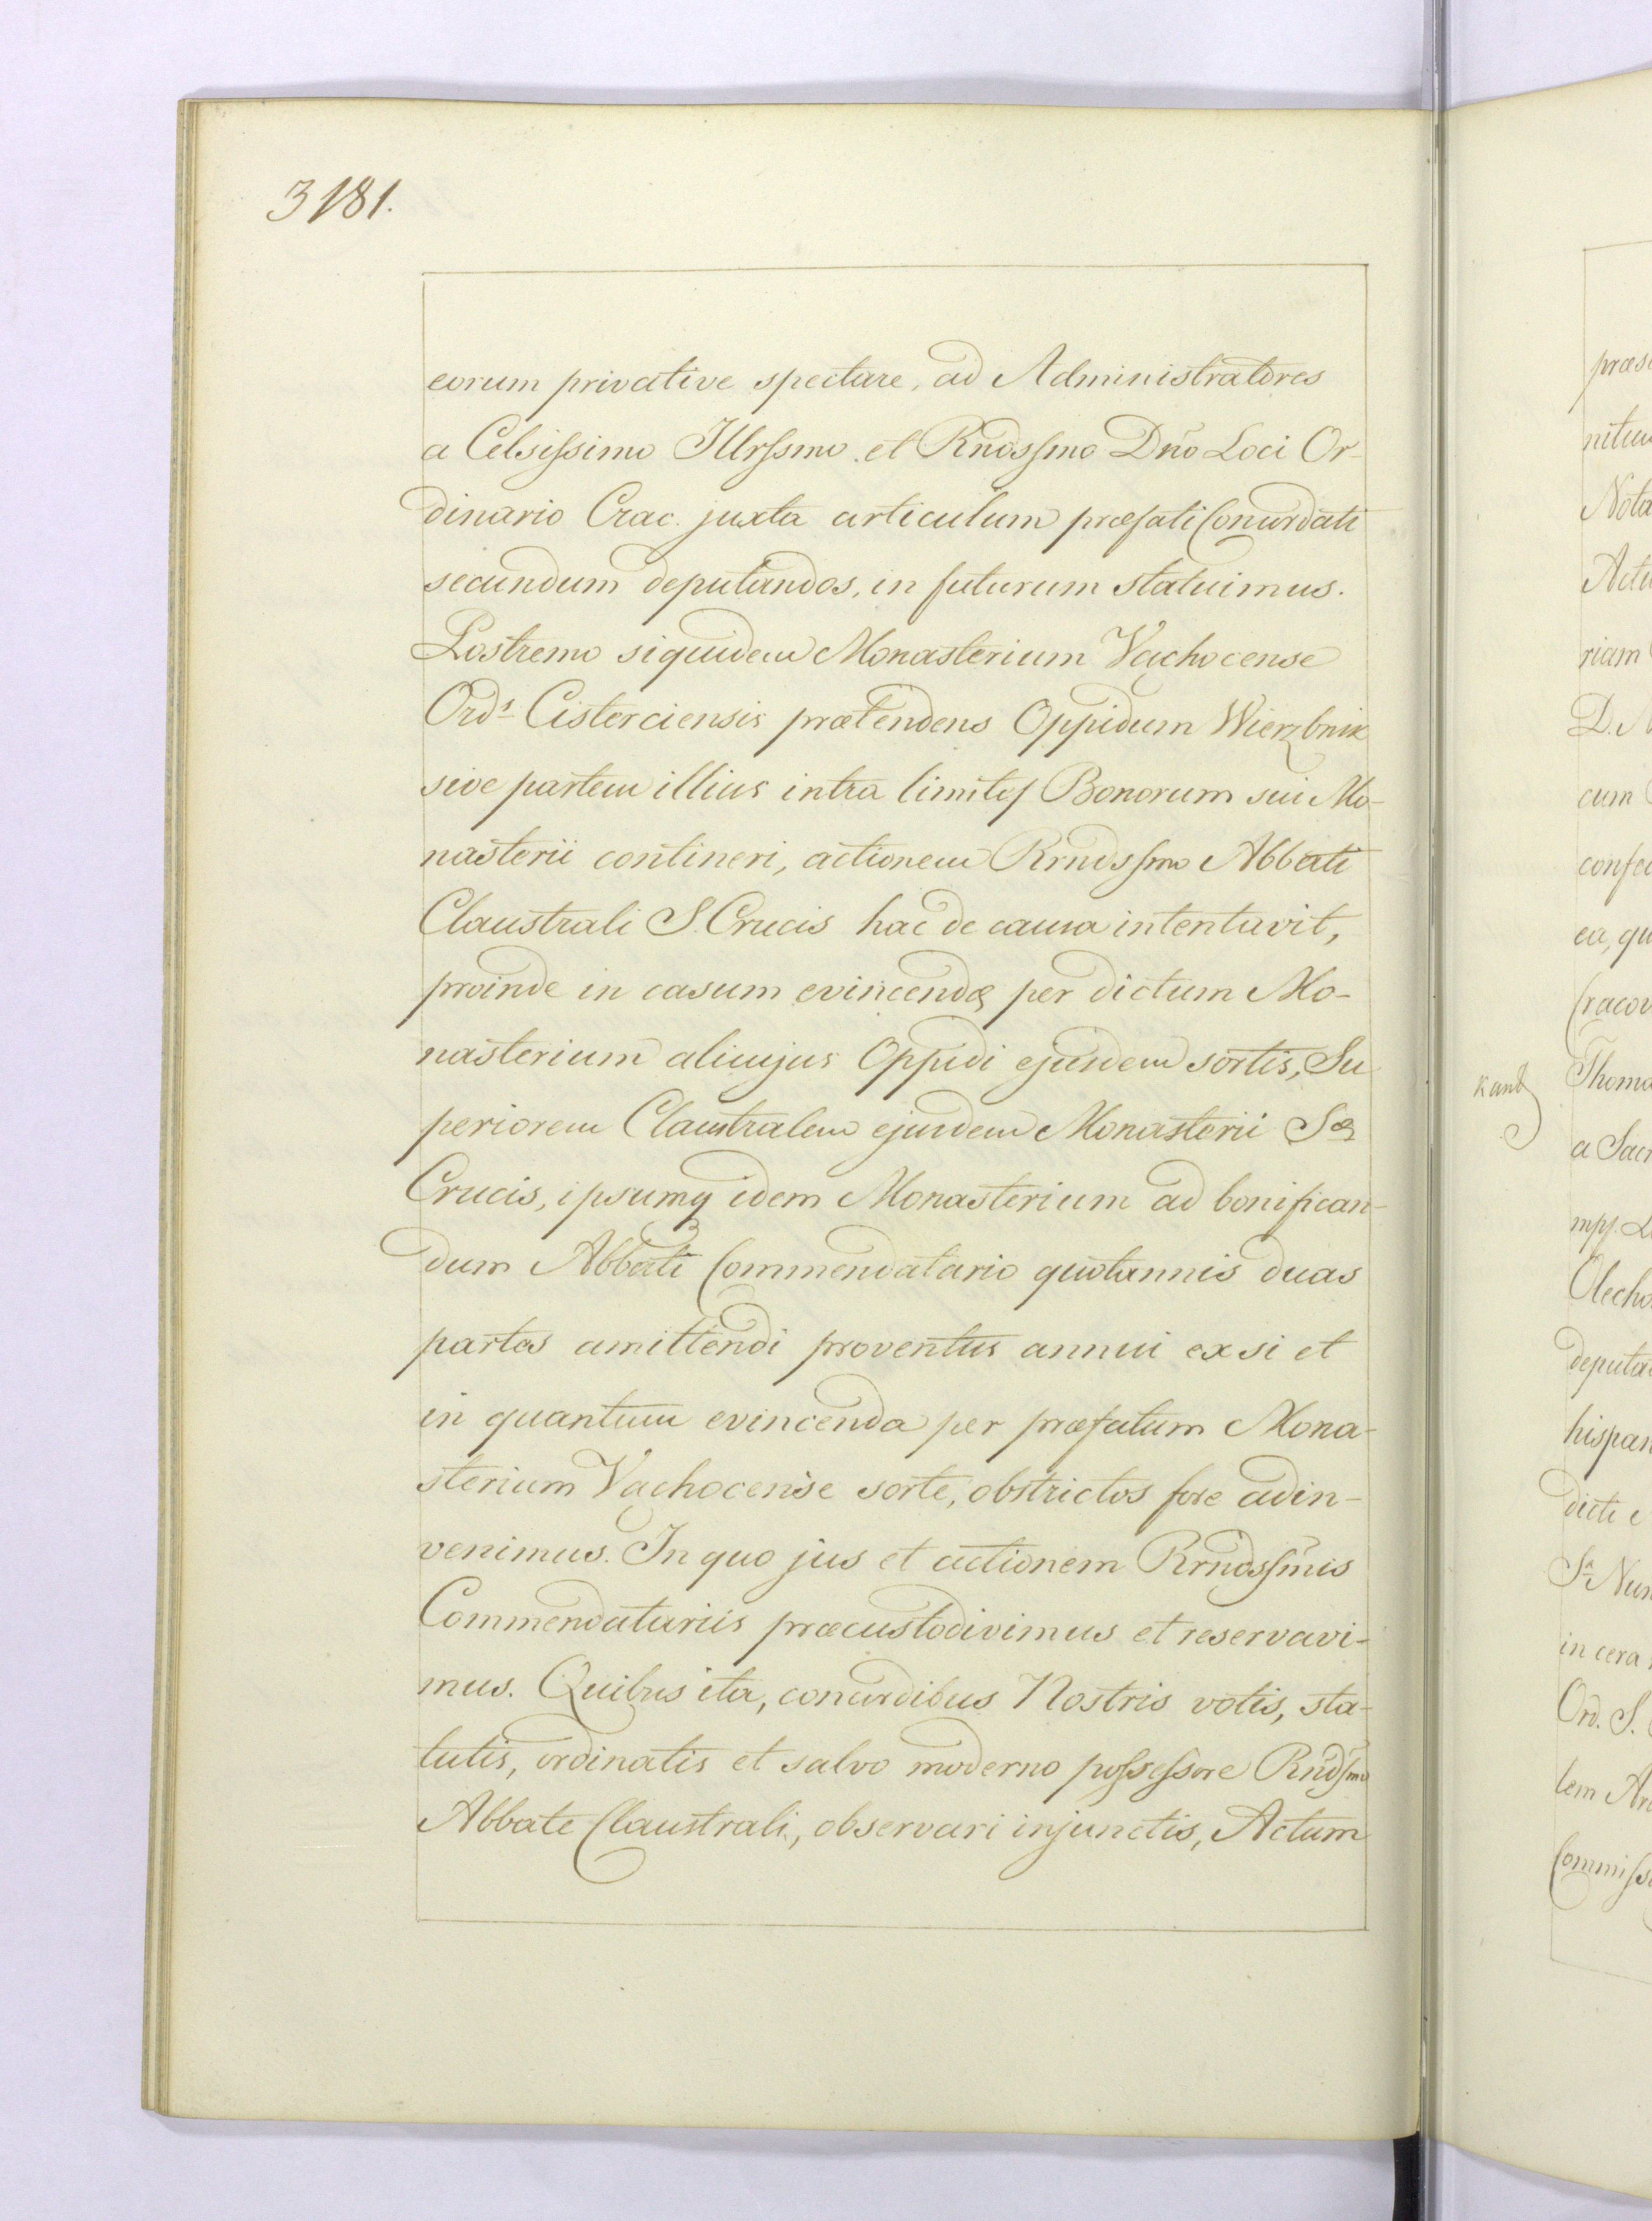 3181.
eorum privative spectare, ad Administratores
a Celsissimo Illrssmo et Rndssmo Dno Loci Or-
dinario Crac. juxta articulum præfati Concordati
secundum deputandos, in futurum statuimus.
Postremo siquidem Monasterium Vąchocense
Ords Cisterciensis prætendens Oppidum Wierzbnik
sive partem illius intra limites Bonorum sui Mo-
nasterii contineri, actionem Rrndssmo Abbati
Claustrali S. Crucis hac de causa intentavit,
proinde in casum evincendæ per dictum Mo-
nasterium alicujus Oppidi ejusdem sortis, Su
periorem Claustralem ejusdem Monasterii Sæ
Crucis, ipsumq idem Monasterium ad bonifican-
dum Abbati Commendatario quotannis duas
partes amittendi proventus annui ex si et
in quantum evincenda per præfatum Mona-
sterium Vachocense sorte, obstrictos fore adin-
venimus. In quo jus et actionem Rrndssmis
Commendatariis præcustodivimus et reservavi-
mus. Quibus ita, concordibus Nostris votis, sta-
tutis, ordinatis et salvo moderno possessore Rndsmo
Abbate Claustrali, observari injunctis, Actum
præs
Nota
riam
D. N
cum
confec
ea, qu
Cracov
Thoma
a Sacr
mpp. L
Olecho
deputa
hispan
dicti e
Sa Nun
in cera
Ord. S.
lem Ar
Commiss